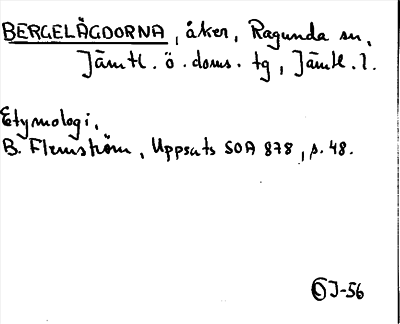 BERGELÄGDORNA, åker, Ragunda sn,
Jämtl. ö. doms. tg, Jämtl. l.
Etymologi.
B. Flemström, Uppsats SOA 878, s. 48.
OJ-56